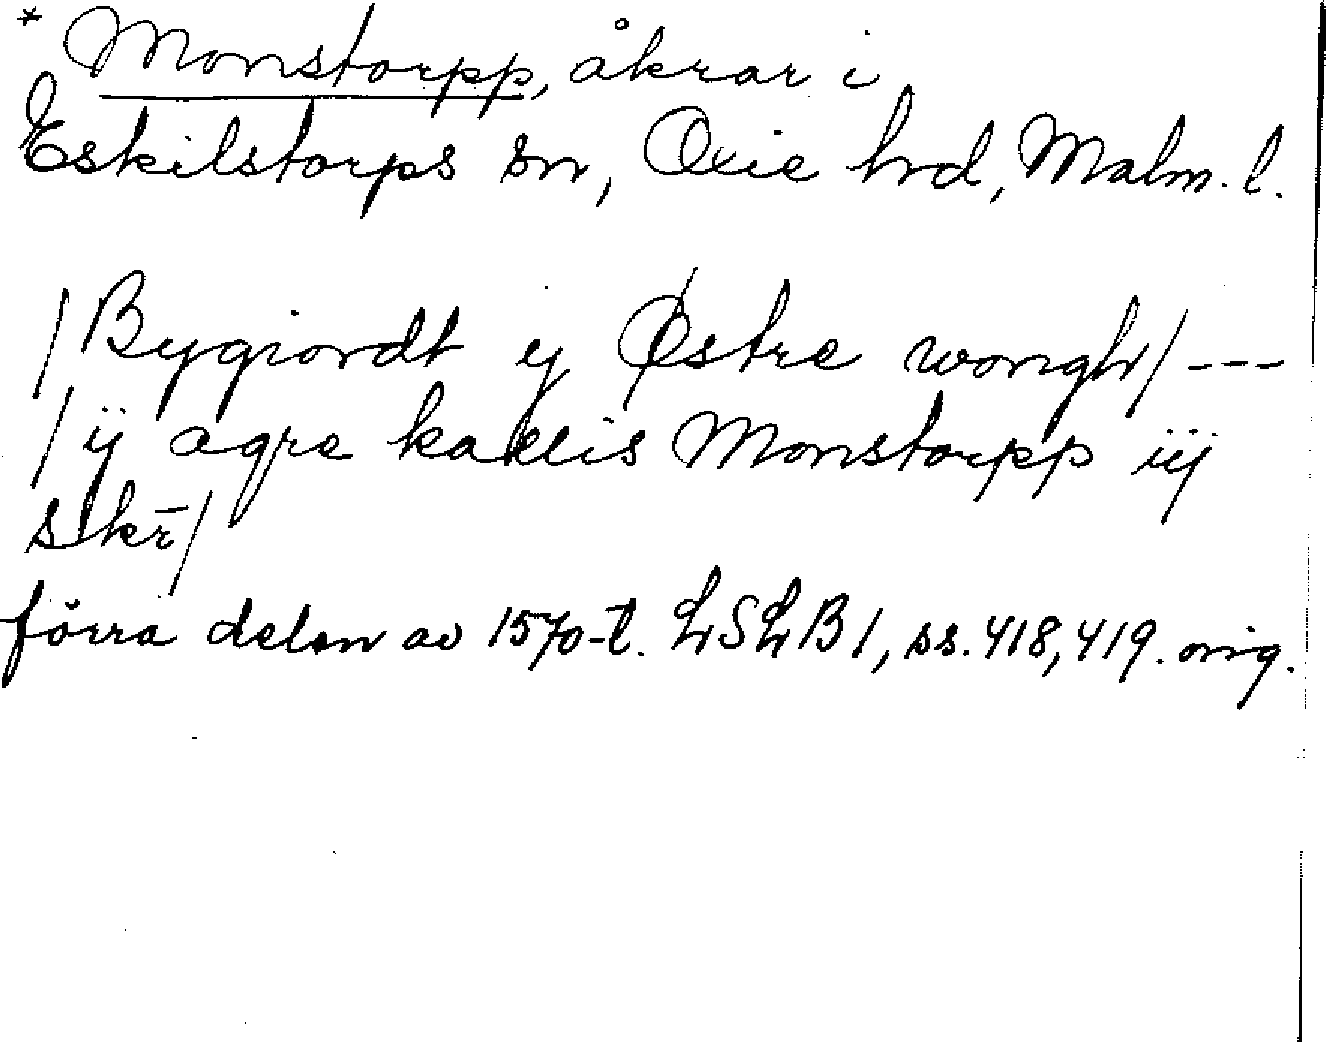 * Monstorpp, åkrar i
Eskilstorps sn, Oxie hrd, Malm. l.
/Bygiordt y Østre wongh/ ---
/ij agre kallis Monstorpp iij
skr̄/
förra delen av 1570-t. LSLB 1, ss. 418, 419. orig.